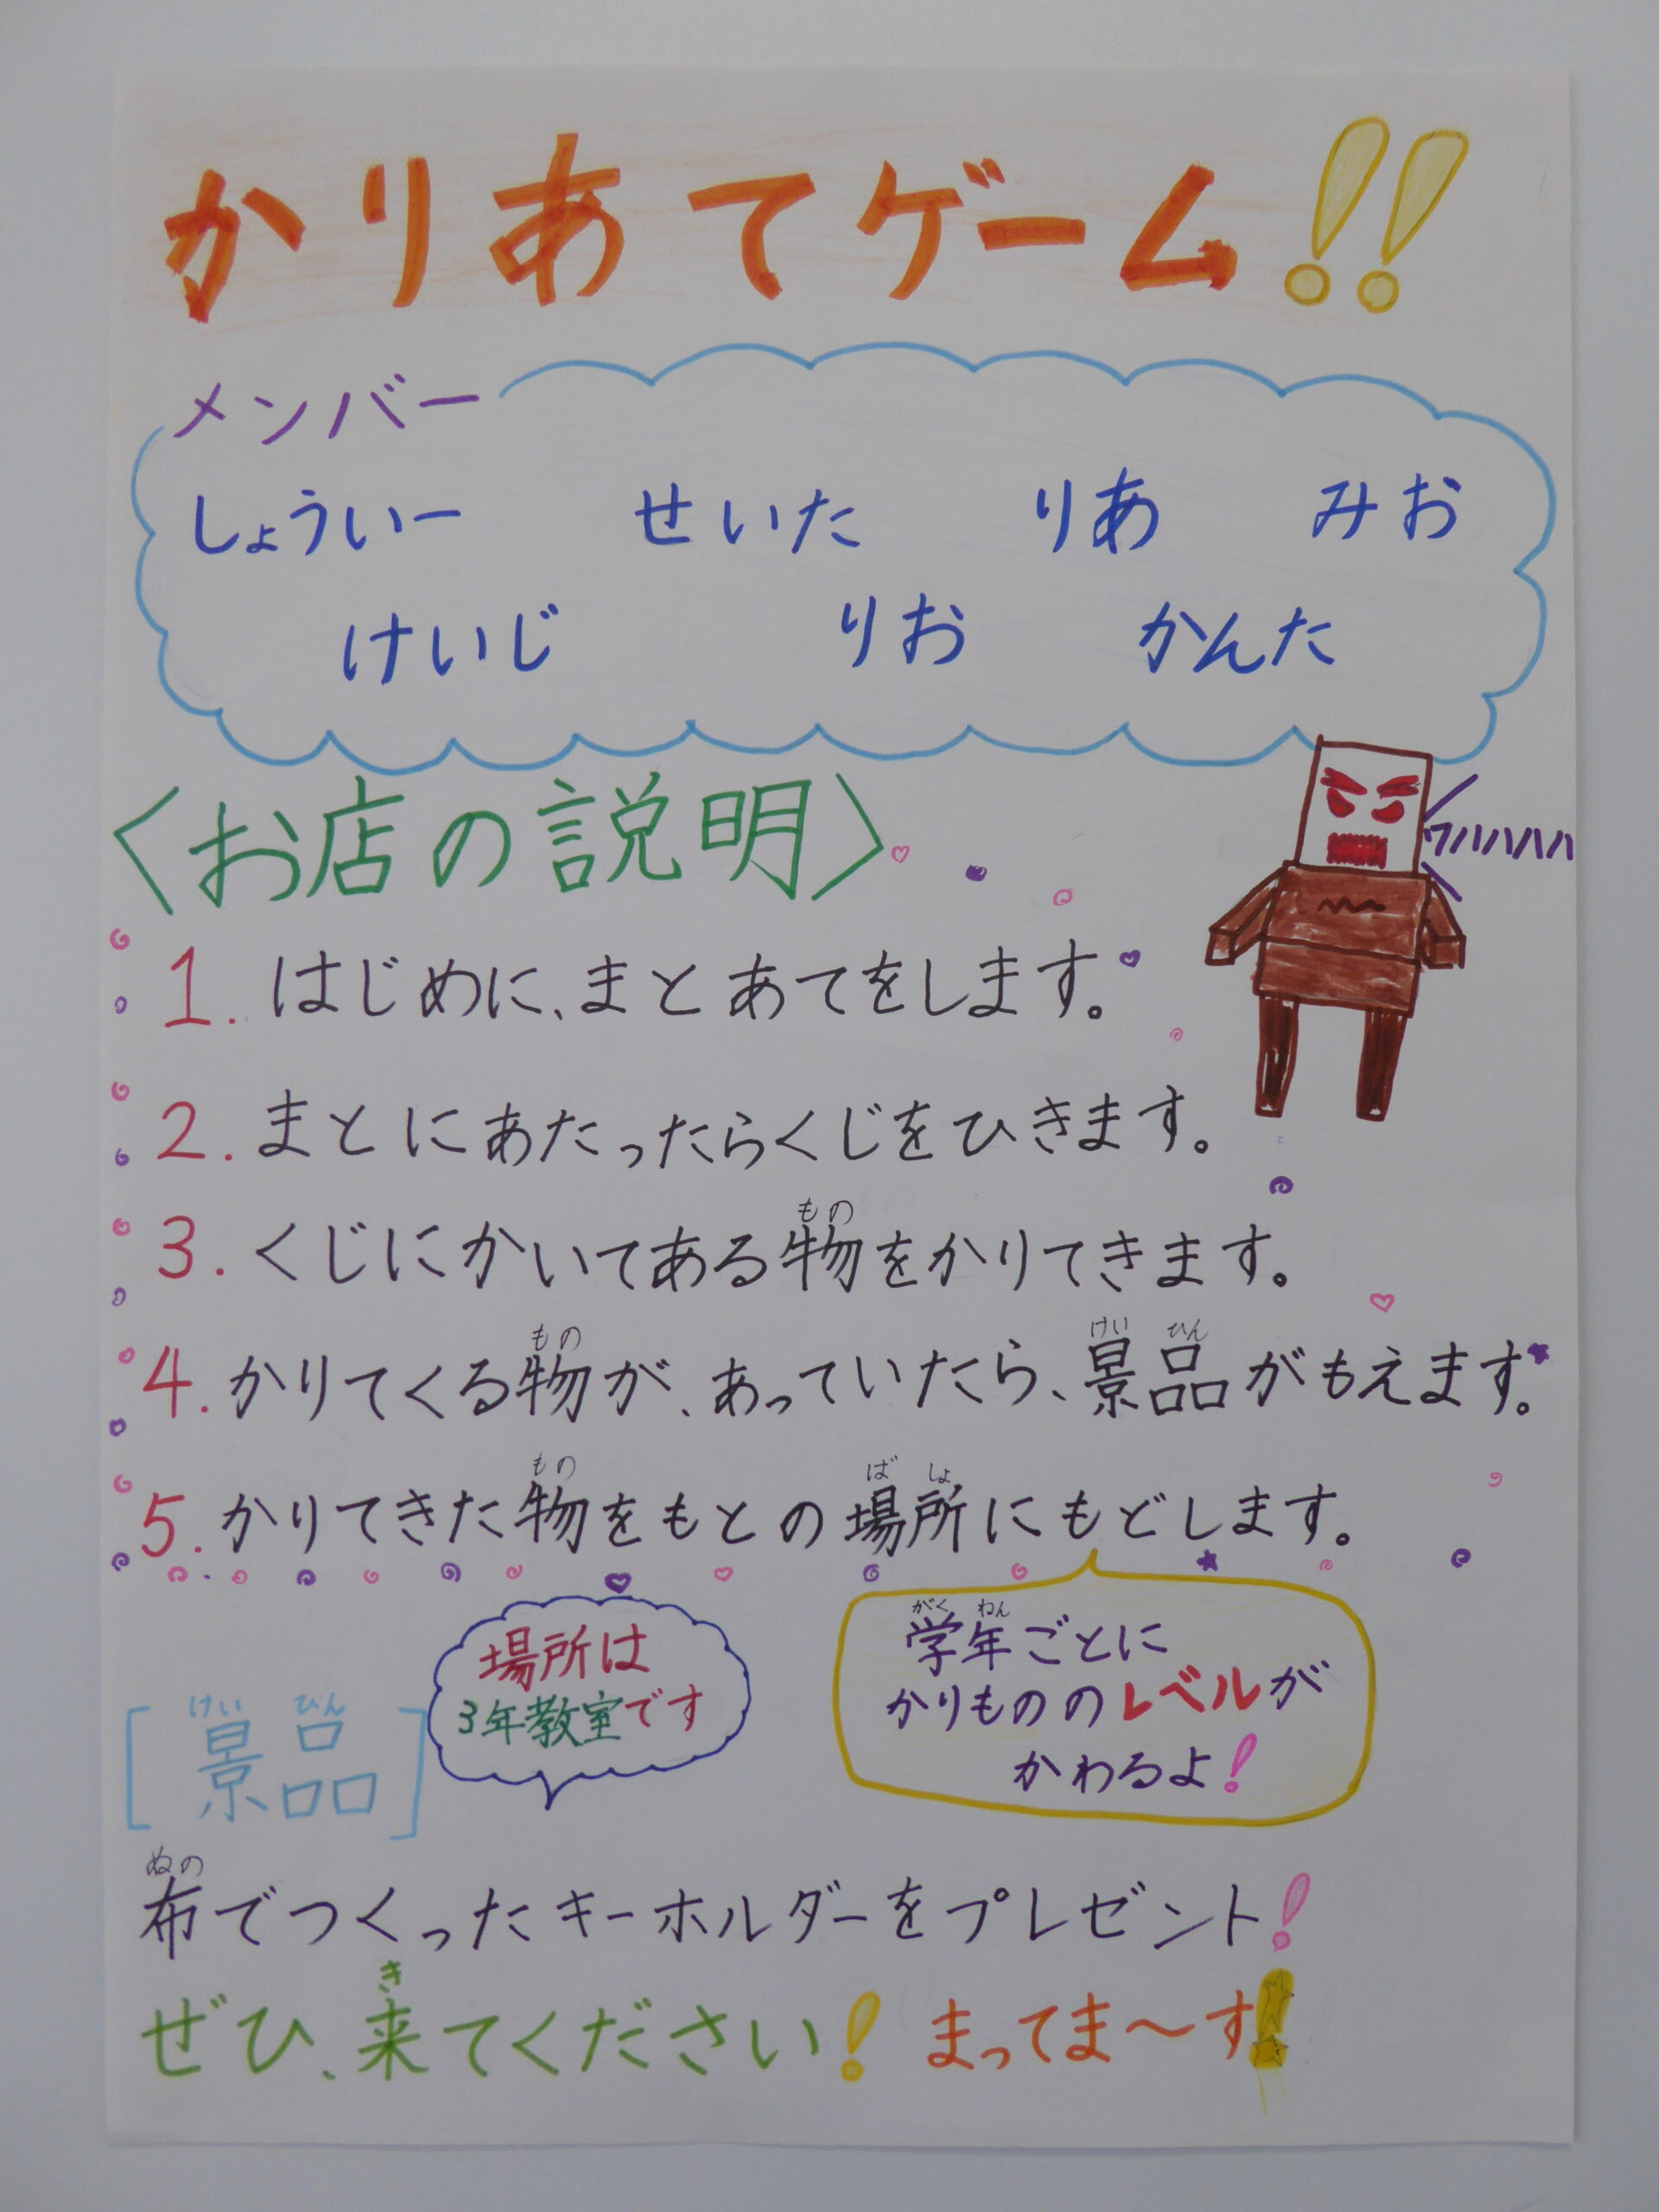 かりあてゲーム!!
メンバー
しょういー せいた りあ みお
けいじ りお かんた
〈お店の説明〉
ワハハハハ
1. はじめに、まとあてをします。
2. まとにあたったらくじをひきます。
もの
3. くじにかいてある物をかりてきます。
もの けい ひん
4. かりてくる物が、あっていたら、景品がもえます。
もの ば しょ
5. かりてきた物をもとの場所にもどします。
場所は
3年教室です
がく ねん
学年ごとに
かりもののレベルが
かわるよ!
けい ひん
[景品]
ぬの
布でつくったキーホルダーをプレゼント!
き
ぜひ、来てください! まってま〜す!